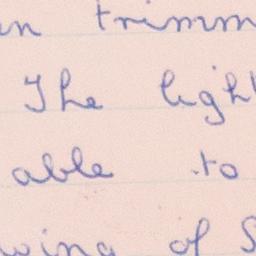 trimm
The ligh
able to
of S